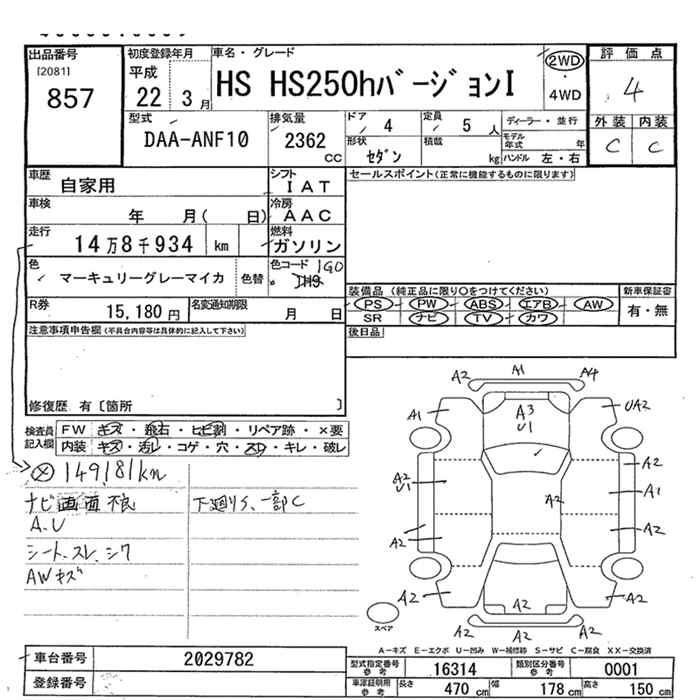 出品番号
[2081]
857
初度登録年月
平成
22 3月
車名・グレード
HS HS250hバージョンI
2WD
・
4WD
評価点
4
外装 内装
C C
型式
DAA-ANF10
排気量
2362
CC
ドア 4
定員 5人
形状 セダン
積載 kg
ディーラー・並行
モデル年式 年
ハンドル 左・右
車歴
自家用
シフト
IAT
車検
年 月( 日)
冷房
AAC
走行
14万8千934 km
燃料
ガソリン
色
マーキュリーグレーマイカ
色替
色コード 1G0
R券
15,180円
名変通知期限
月 日
セールスポイント(正常に機能するものに限ります)
装備品 (純正品に限り○をつけてください)
新車保証書
PS PW ABS エアB AW
有・無
SR ナビ TV カワ
後日品
注意事項申告欄(不具合内容等は具体的に記入して下さい)
修復歴 有〔箇所 〕
検査員
記入欄
FW キズ・飛石・ヒビ割・リペア跡・×要
内装 キズ・汚レ・コゲ・穴・スリ・キレ・破レ
149181km
ナビ画面不良
A.U
シート.スレ.シワ
AWキズ
下廻りS、一部C
A2 A1 A4
A1 A3 U1 UA2
A2 U1 A2
A2 A1
A2 A2
A2 A2 A2
A2
スペア
A-キズ E-エクボ U-凹み W-補修跡 S-サビ C-腐食 XX-交換済
車台番号 2029782
登録番号
型式指定番号 参考 16314
類別区分番号 参考 0001
車庫証明用 参考 長さ 470cm 幅 178cm 高さ 150cm